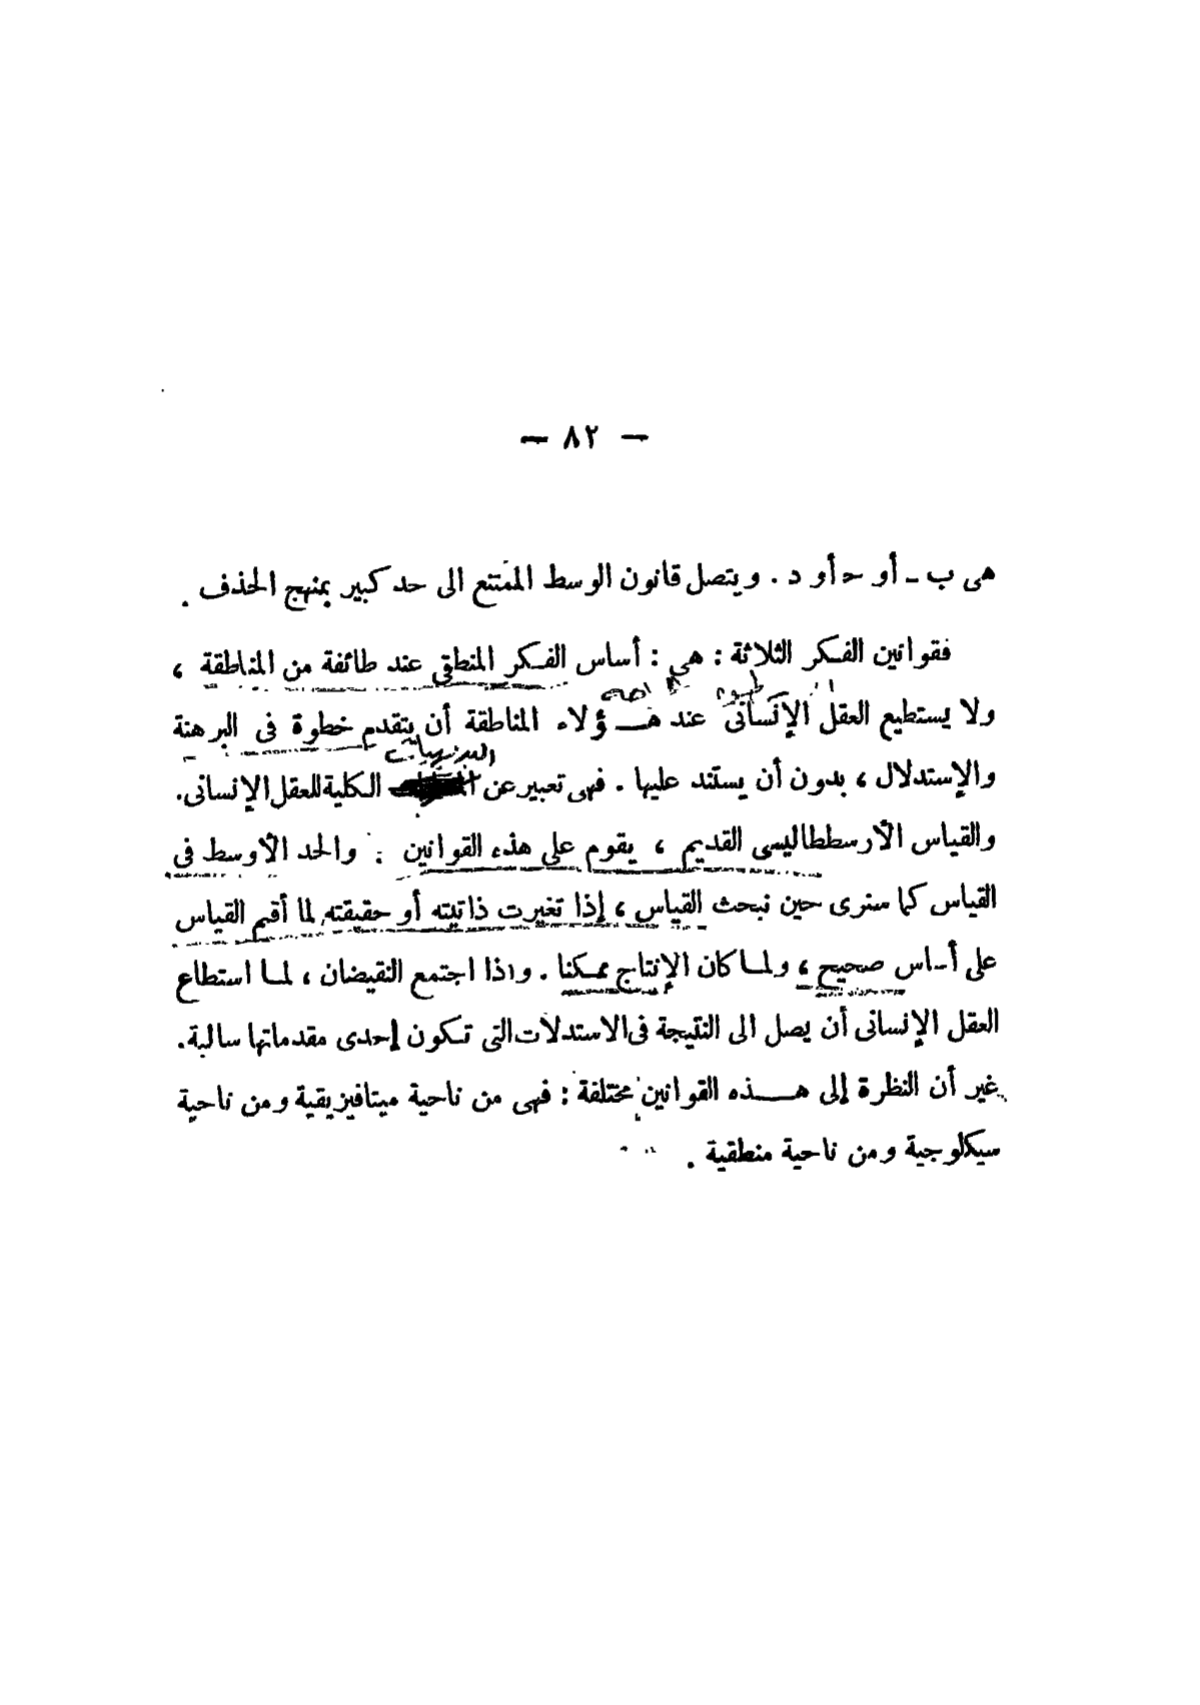 — ٨٢ —
هى ب ـ أو حـ أو د . ويتصل قانون الوسط الممتنع الى حد كبير بمنهج الحذف .
فقوانين الفكر الثلاثة : هى : أساس الفكر المنطقى عند طائفة من المناطقة ،
ولا يستطيع العقل الإنسانى عند هـؤلاء المناطقة أن يتقدم خطوة فى البرهنة
البديهيات
والإستدلال ، بدون أن يستند عليها . فهى تعبير عن الكلية للعقل الإنسانى.
والقياس الأرسططاليسى القديم ، يقوم على هذه القوانين . والحد الأوسط فى
القياس كما سنرى حين نبحث القياس ، إذا تغيرت ذاتيته أو حقيقته لما أقيم القياس
على أساس صحيح ، ولما كان الإنتاج ممكنا . واذا اجتمع النقيضان ، لما استطاع
العقل الإنسانى أن يصل الى النتيجة فى الاستدلات التى تكون إحدى مقدماتها سالبة.
غير أن النظرة إلى هـذه القوانين مختلفة : فهى من ناحية ميتافيزيقية ومن ناحية
سيكلوجية ومن ناحية منطقية .